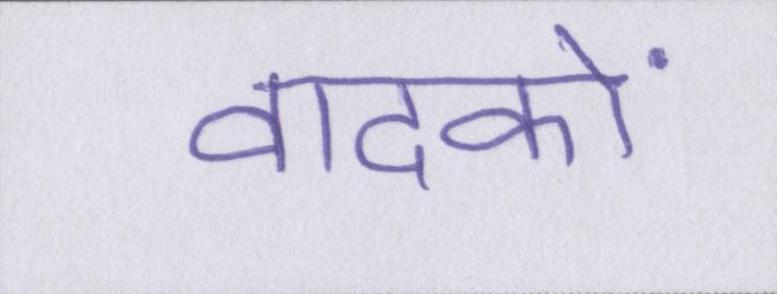 वादकों